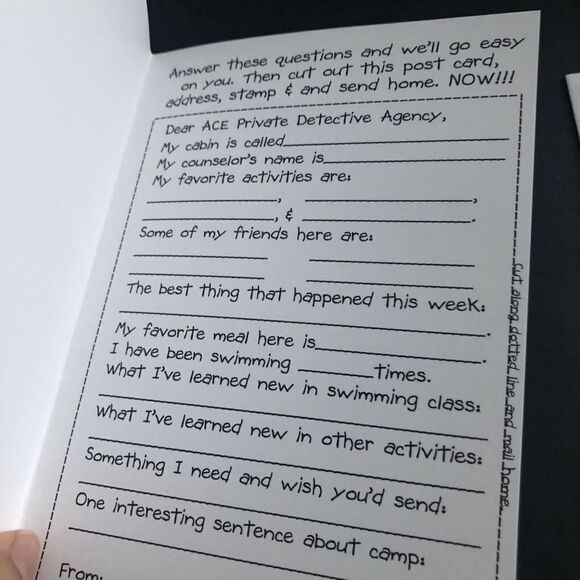 Answer these questions and we'll go easy
on you. Then cut out this post card,
address, stamp & and send home. NOW!!!
Dear ACE Private Detective Agency,
My cabin is called
My counselor's name is
My favorite activities are:
,
,
, &
.
Some of my friends here are:
The best thing that happened this week:
.
My favorite meal here is
.
I have been swimming
times.
What I've learned new in swimming class:
What I've learned new in other activities:
Something I need and wish you'd send:
One interesting sentence about camp:
From:
Cut along dotted line and mail home.